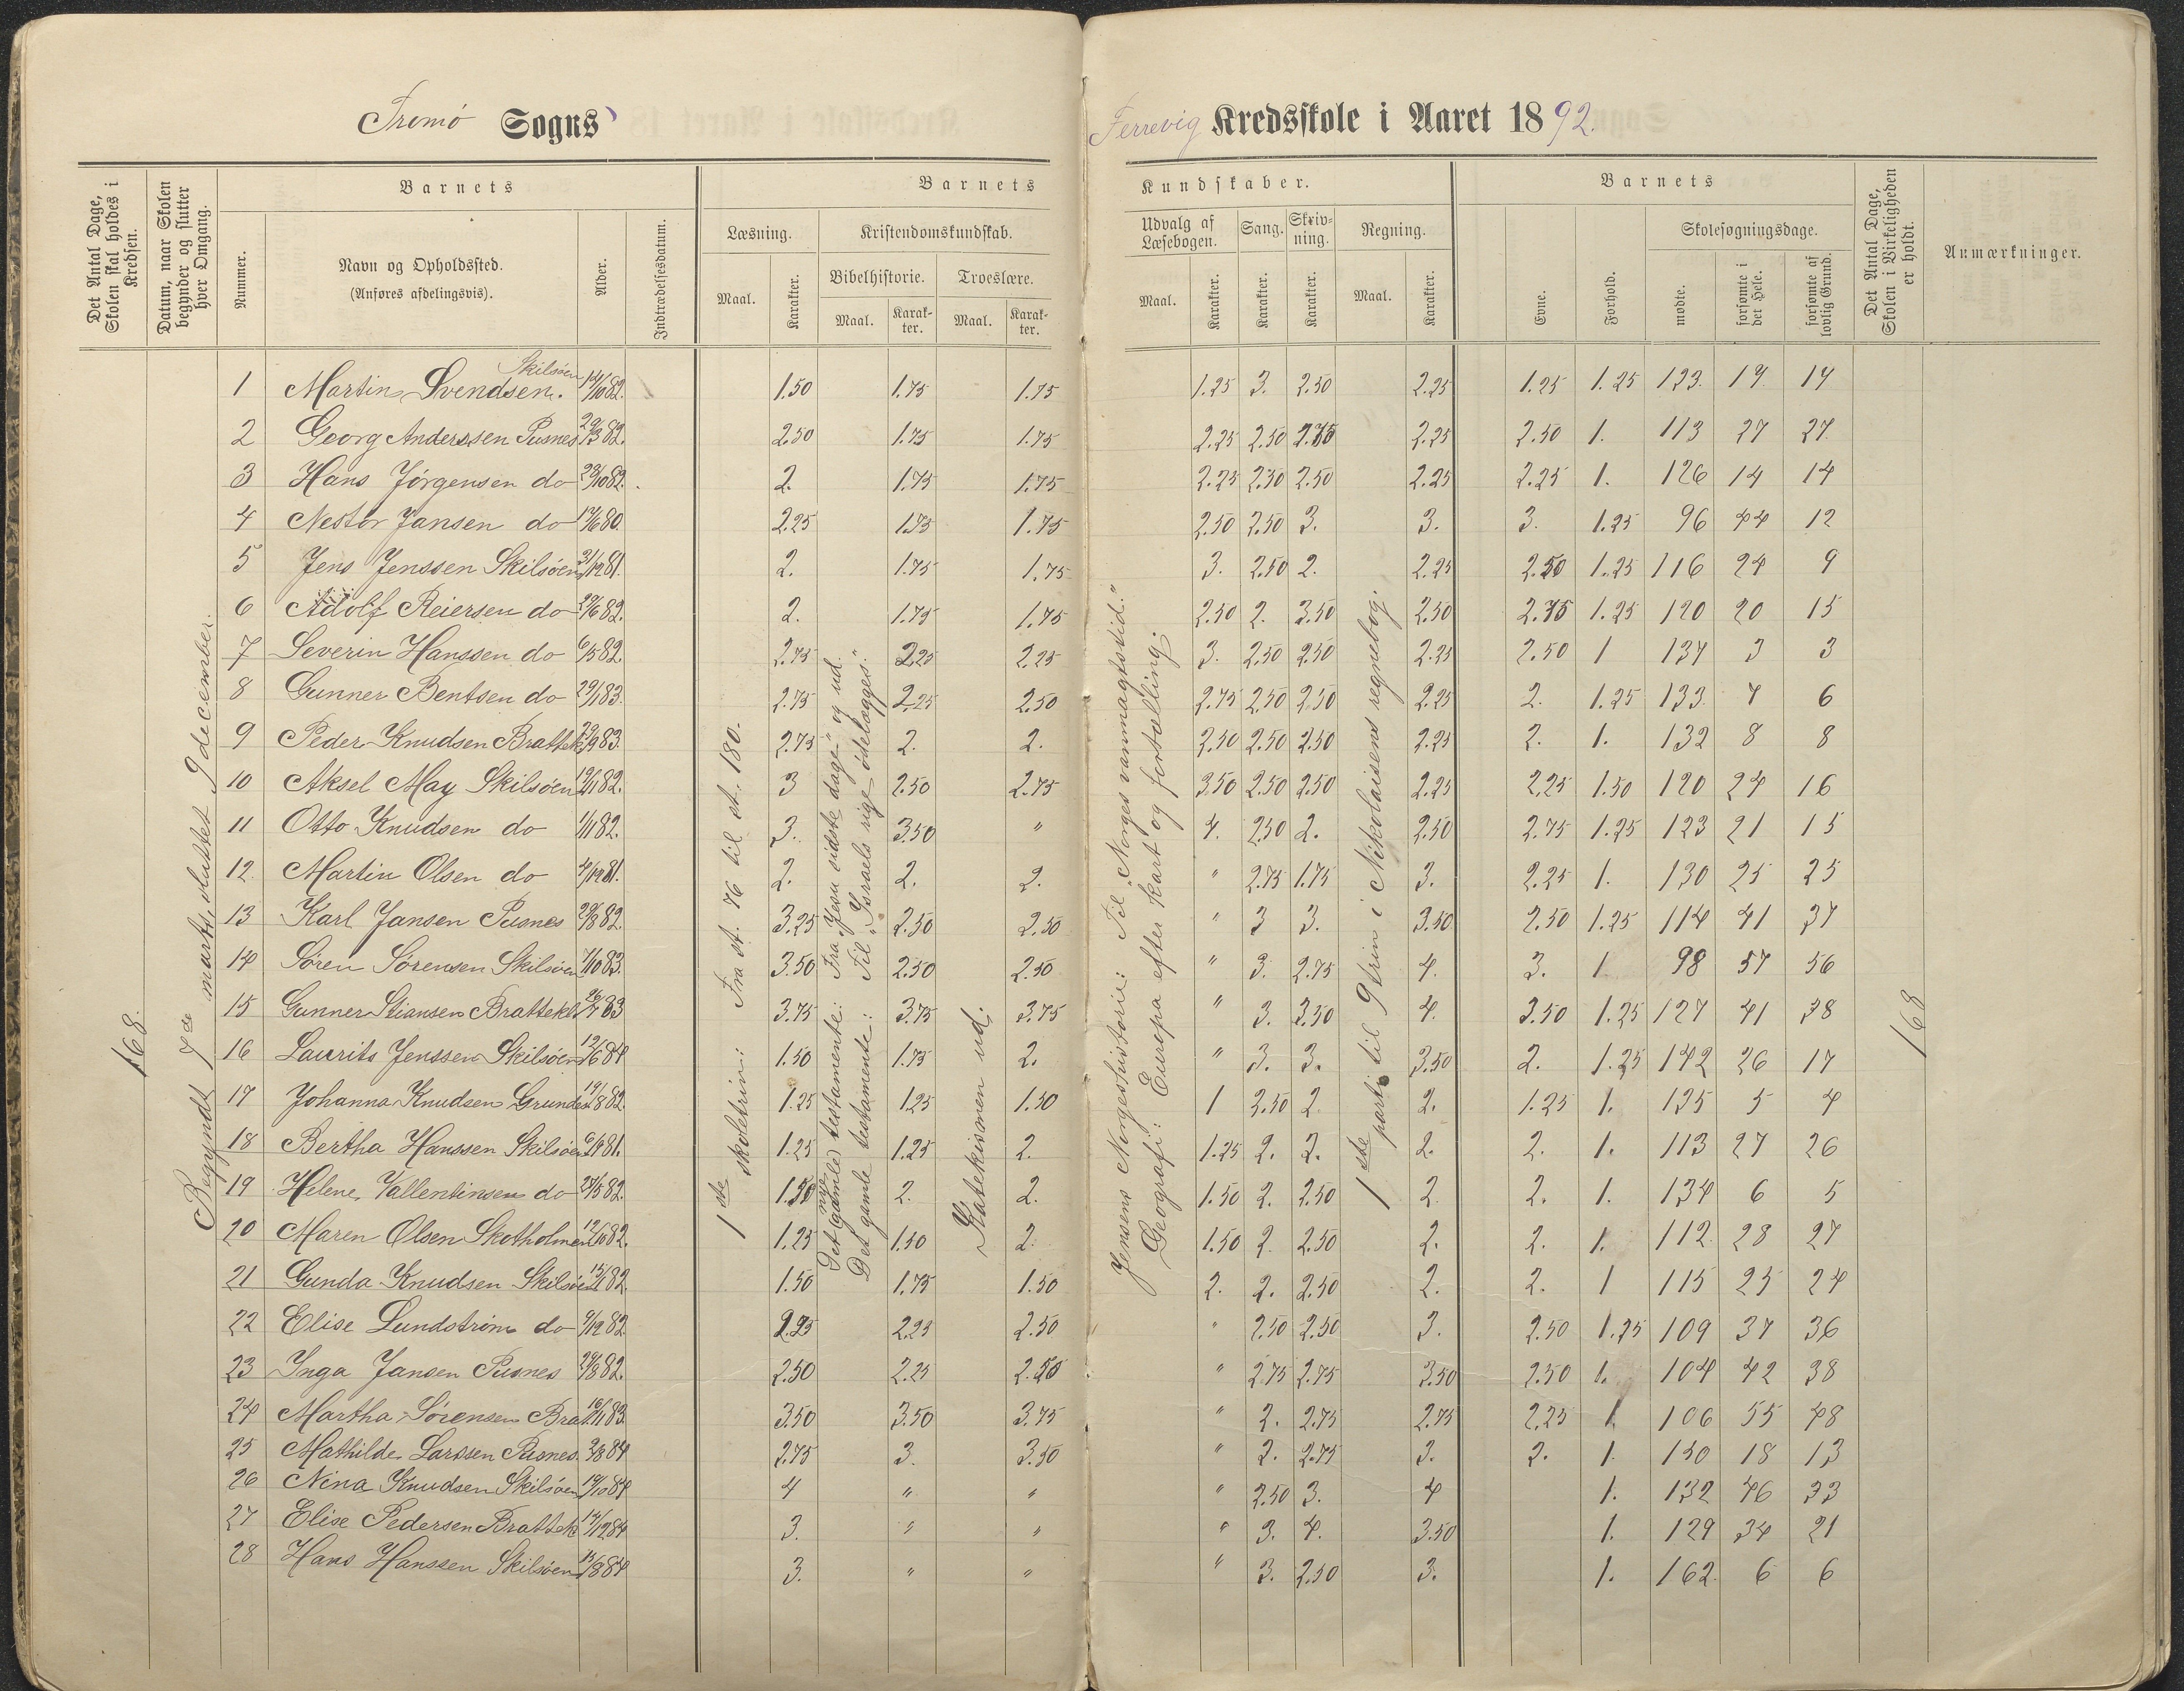 Tromø Sogns
Færrevig Kredsskole i Aaret 1892.
Det Antal Dage, Skolen skal holdes i Kredsen.
Datum, naar Skolen begynder og slutter hver Omgang.
Barnets
Nummer.
Navn og Opholdssted.
(Anføres afdelingsvis).
Alder.
Indtrædelsesdatum.
Barnets
Læsning.
Maal.
Karakter.
Kristendomskundskab.
Bibelhistorie.
Maal.
Karakter.
Troeslære.
Maal.
Karakter.
Kundskaber.
Udvalg af Læsebogen.
Maal.
Karakter.
Sang.
Karakter.
Skrivning.
Karakter.
Regning.
Maal.
Karakter.
Barnets
Evne.
Forhold.
Skolesøgningsdage.
mødte.
forsømte i det Hele.
forsømte af lovlig Grund.
Det Antal Dage, Skolen i Virkeligheden er holdt.
Anmærkninger.
168.
Begyndt 7de marts, sluttet 9 december.
1ste skoletrin: Fra st. 76 til st. 180.
Det nye (gamle) testamente: Fra "Jesu sidste dage" og ud.
Det gamle testamente: Til "Israels rige ødelægges."
Katekismen ud.
Jensens Norgeshistorie: Til "Norges vanmagtstid."
Geografi: Europa efter kart og fortælling.
1ste parti til 9 trin i Nikolaisens regnebog.
168
1 Martin Svendsen. Skilsøen 14/10 82. 1.50 1.75 1.75 1.25 3. 2.50 2.25 1.25 1.25 123. 19. 14
2 Georg Anderssen Pusnes 29/3 82. 2.50 1.75 1.75 2.25 2.50 2.75 2.25 2.50 1. 113 27 27
3 Hans Jørgensen do 23/10 82. 2. 1.75 1.75 2.25 2.50 2.50 2.25 2.25 1. 126 14 14
4 Nestor Jansen do 17/6 80. 2.25 1.75 1.75 2.50 2.50 3. 3. 3. 1.25 96 44 12
5 Jens Jenssen Skilsøen 31/12 81. 2. 1.75 1.75 3. 2.50 2. 2.25 2.50 1.25 116 24 9
6 Adolf Reiersen do 29/6 82. 2. 1.75 1.75 2.50 2. 3.50 2.50 2.75 1.25 120 20 15
7 Severin Hanssen do 6/5 82. 2.75 2.25 2.25 3. 2.50 2.50 2.25 2.50 1 137 3 3
8 Gunner Bentsen do 29/1 83. 2.75 2.25 2.50 2.75 2.50 2.50 2.25 2. 1.25 133. 7 6
9 Peder Knudsen Brattek 23/9 83. 2.75 2. 2. 2.50 2.50 2.50 2.25 2. 1. 132 8 8
10 Aksel May Skilsøen 19/11 82. 3 2.50 2.75 3.50 2.50 2.50 2.25 2.25 1.50 120 24 16
11 Otto Knudsen do 1/11 82. 3. 3.50 " 4. 2.50 2. 2.50 2.75 1.25 123 21 15
12. Martin Olsen do 4/12 81. 2. 2. 2. " 2.75 1.75 3. 2.25 1. 130 25 25
13 Karl Jansen Pusnes 29/8 82. 3.25 2.50 2.50 " 3 3. 3.50 2.50 1.25 114 41 37
14 Søren Sørensen Skilsøen 7/10 83. 3.50 2.50 2.50 " 3. 2.75 4. 3. 1 98 57 56
15 Gunner Stiansen Brattekl 26/7 83 3.75 3.75 3.75 " 3. 3.50 4. 3.50 1.25 127 41 38
16 Laurits Jenssen Skilsøen 12/6 84 1.50 1.75 2. " 3. 3. 3.50 2. 1.25 142 26 17
17 Johanna Knudsen Grundes 19/8 82. 1.25 1.25 1.50 1 2.50 2 2. 1.25 1. 135 5 4
18 Bertha Hanssen Skilsøen 6/9 81. 1.25 1.25 2. 1.25 2. 2. 2. 2. 1. 113 27 26
19 Helene Vallentinsen do 24/5 82. 1.50 2. 2. 1.50 2. 2.50 2. 2. 1. 134 6 5
20 Maren Olsen Skotholmen 12/6 82. 1.25 1.50 2. 1.50 2. 2.50 2. 2. 1. 112. 28 27
21 Gunda Knudsen Skilsøen 15/1 82. 1.50 1.75 1.50 2. 2. 2.50 2. 2. 1 115 25 24
22 Elise Lundstrøm do 9/12 82 2.25 2.25 2.50 " 2.50 2.50 3. 2.50 1.25 109 37 36
23 Inga Jansen Pusnes 29/8 82. 2.50 2.25 2.50 " 2.75 2.75 3.50 2.50 1. 104 42 38
24 Martha Sørensen Brat 16/11 83. 3.50 3.50 3.75 " 2. 2.75 2.75 2.25 1. 106 55 48
25 Mathilde Larssen Pusnes. 3/8 84 2.75 3. 3.50 " 2. 2.75 3. 2. 1. 150 18 13
26 Nina Knudsen Skilsøen 19/10 84 4 " " " 2.50 3. 4 1. 132 46 33
27 Elise Pedersen Brattek 14/12 84 3. " " " 3. 4. 3.50 1. 129 34 21
28 Hans Hanssen Skilsøen 13/8 84 3. " " " 3. 2.50 3. 1. 162. 6 6